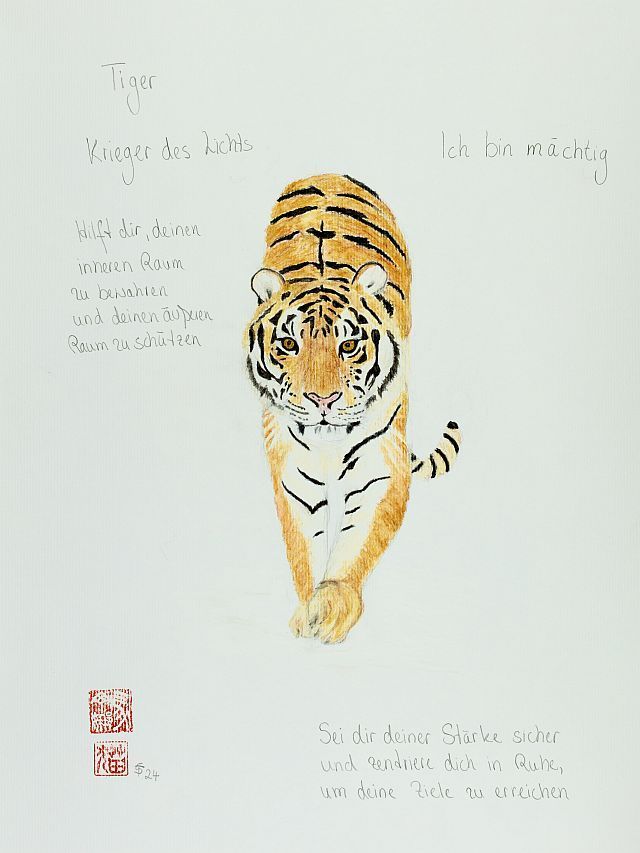 Tiger
Krieger des Lichts
Ich bin mächtig
Hilft dir, deinen
inneren Raum
zu bewahren
und deinen äußeren
Raum zu schützen
福
24
Sei dir deiner Stärke sicher
und zentriere dich in Ruhe,
um deine Ziele zu erreichen